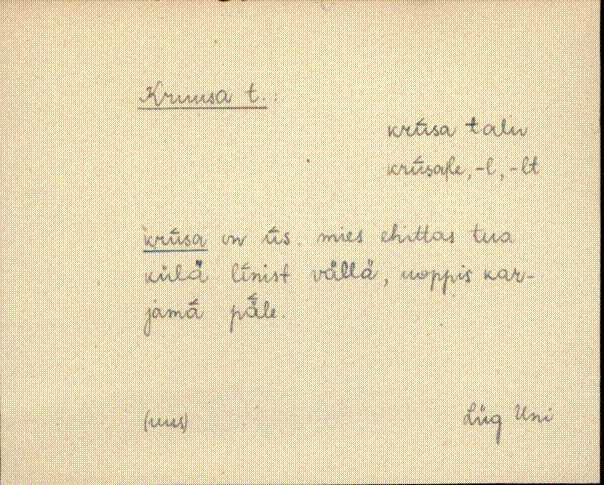 Kruusa t.:
krūsa talu
krūsalle, -l, -lt
krūsa on ūs. mies ehittas tua
külä līnist vällä, uoppis kar-
jamā pǟle.
(uus)
Lüg Uni